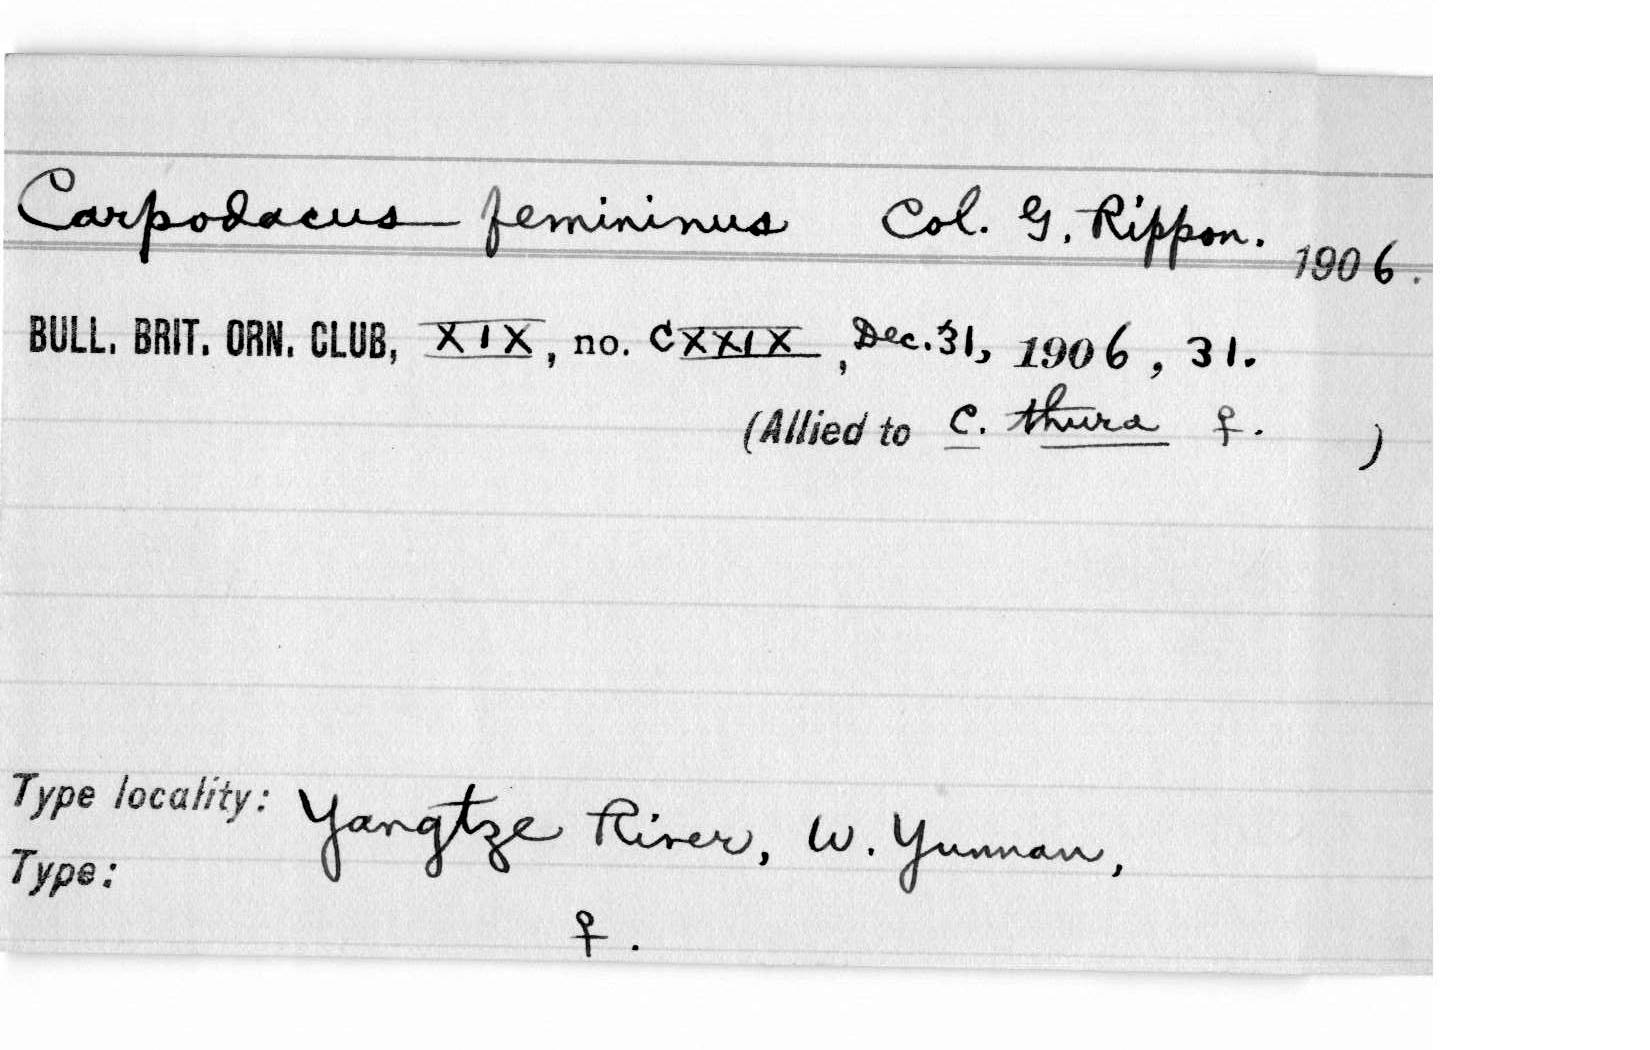 Carpodacus femininus Col. G. Rippon. 1906.
BULL. BRIT. ORN. CLUB, XIX, no. CXXIX, Dec. 31, 1906, 31.
(Allied to C. thura ♀. )
Type locality: Yangtze River, W. Yunnan,
Type:
♀.